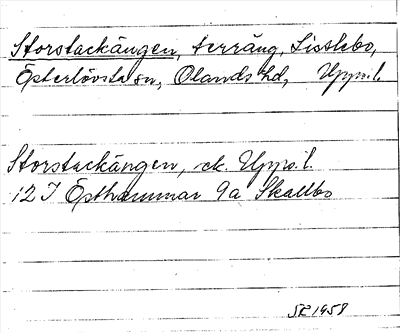 Storstackängen, terräng, Lisslebo,
Österlövsta sn, Olands hd, Upps. l.
Storstackängen, ek. Upps. l.
12 I Östhammar 9a Skallbo
SE 1958